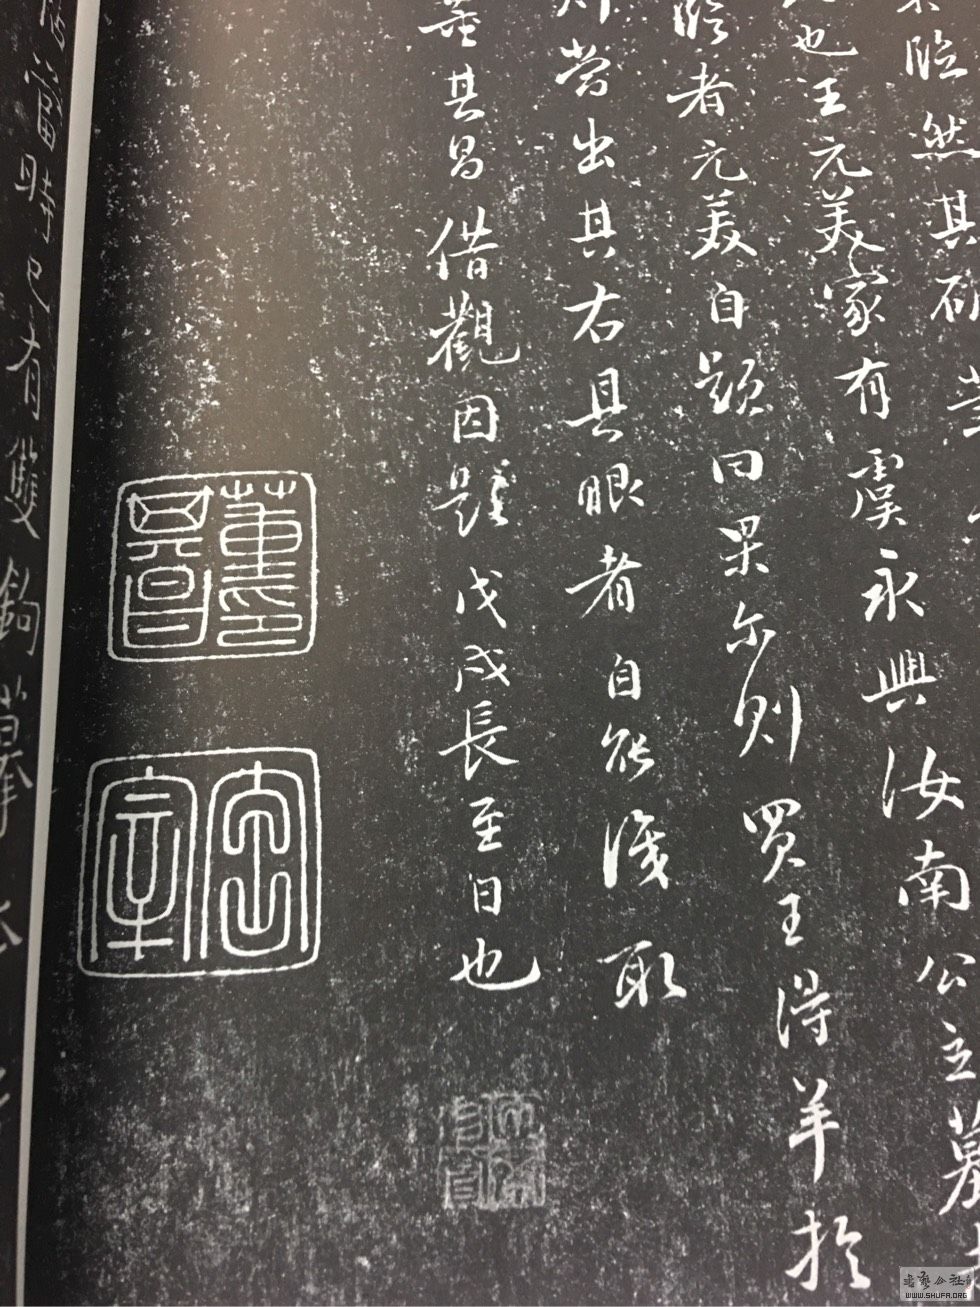 臨然其研
也王元美家有虞永興汝南公主墓
臨者元美自題曰果尔則買王得羊於
嘗出其右具眼者自能識取
董其昌借觀因題戊戌長至日也
董其昌印
宗室
當時已有雙鉤摹本
書藝公社
WWW.SHUFA.ORG